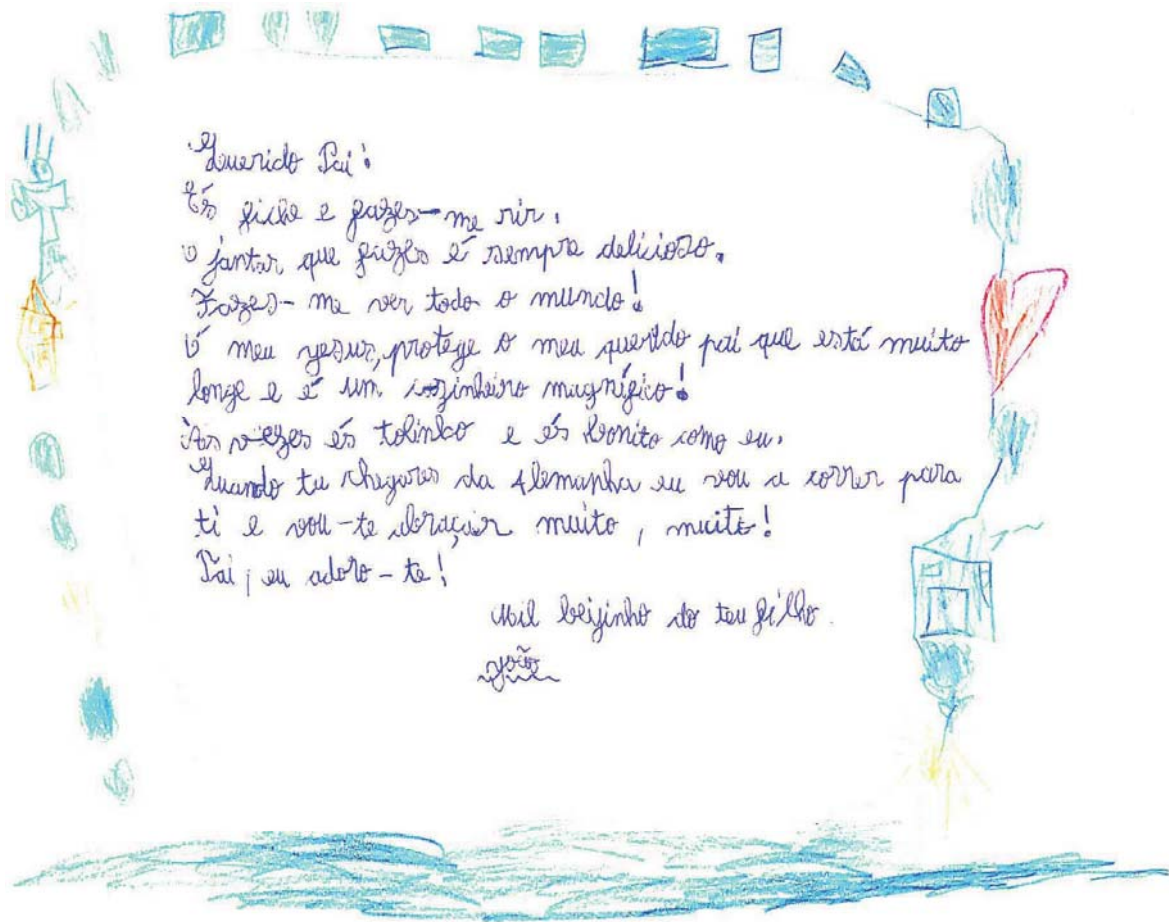 Querido Pai!
És fiche e fazes-me rir.
O jantar que fazes é sempre delicioso.
Fazes-me ver todo o mundo!
Ó meu Jesus, protege o meu querido pai que está muito
longe e é um cozinheiro magnífico!
Às vezes és tolinho e és bonito como eu.
Quando tu chegares da Alemanha eu vou a correr para
ti e vou-te abraçar muito, muito!
Pai, eu adoro-te!
Mil beijinho do teu filho.
João